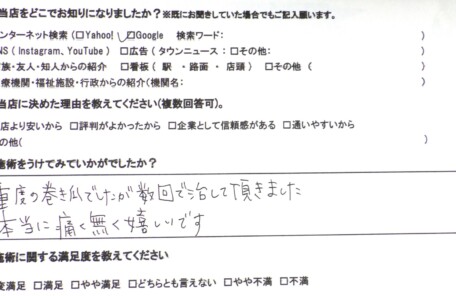 当店をどこでお知りになりましたか？※既にお聞きしていた場合でもご記入願います。
ンターネット検索（□Yahoo! ☑Google 検索ワード： ）
NS（Instagram、YouTube） □広告（タウンニュース：□その他： ）
族・友人・知人からの紹介 □看板（ 駅 ・ 路面 ・ 店頭 ） □その他（ ）
療機関・福祉施設・行政からの紹介（機関名： ）
当店に決めた理由を教えてください(複数回答可)。
店より安いから □評判がよかったから □企業として信頼感がある □通いやすいから
の他( )
施術をうけてみていかがでしたか？
重度の巻き爪でしたが数回で治して頂きました
本当に痛く無く嬉しいです
施術に関する満足度を教えてください
変満足 □満足 □やや満足 □どちらとも言えない □やや不満 □不満